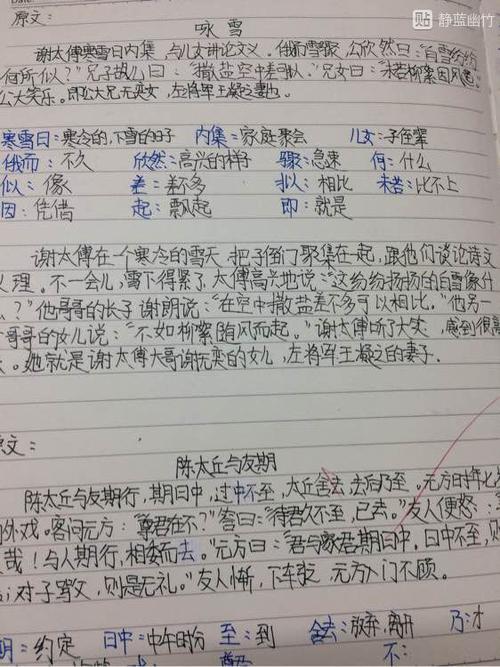 静蓝幽竹
原文：
咏雪
谢太傅寒雪日内集，与儿女讲论文义。俄而雪骤，公欣然曰：“白雪纷纷
何所似？”兄子胡儿曰：“撒盐空中差可拟。”兄女曰：“未若柳絮因风起。”
公大笑乐。即公大兄无奕女，左将军王凝之妻也。
寒雪日：寒冷的，下雪的日子 内集：家庭聚会 儿女：子侄辈
俄而：不久 欣然：高兴的样子 骤：急速 何：什么
似：像 差：差不多 拟：相比 未若：比不上
因：凭借 起：飘起 即：就是
谢太傅在一个寒冷的雪天，把子侄们聚集在一起，跟他们谈论诗文
义理。不一会儿，雪下得紧了，太傅高兴地说：“这纷纷扬扬的白雪像什
么？”他哥哥的长子谢朗说：“在空中撒盐差不多可以相比。”他另一
个哥哥的女儿说：“不如柳絮随风而起。”谢太傅听了大笑，感到很高
。她就是谢太傅大哥谢无奕的女儿，左将军王凝之的妻子．
原文：
陈太丘与友期
陈太丘与友期行，期日中，过中不至，太丘舍去，去后乃至。元方时年七
门外戏。客问元方：“尊君在不？”答曰：“待君久不至，已去。”友人便怒：
哉！与人期行，相委而去。”元方曰：“君与家君期日中，日中不至，则
；对子骂父，则是无礼。”友人惭，下车引之，元方入门不顾。
期：约定 日中：中午时分 至：到 舍去：放弃，离开 乃：才
不：